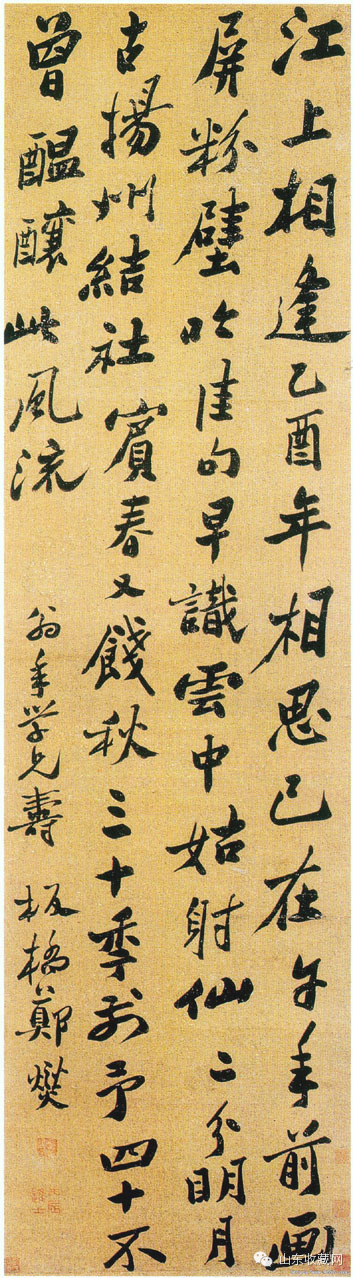 江上相逢乙酉年相思已在午年前画
屏粉壁吟佳句早識雲中姑射仙二分明月
古揚州結社賓春又餞秋三十季前予四十不
曾醞釀此風流
翁年学兄壽 板橋鄭燮
山东收藏网